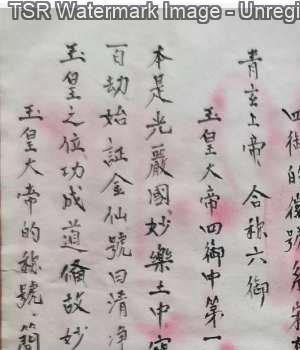 TSR Watermark Image - Unregi
四御的德號
青玄上帝 合称六御
玉皇大帝四御中第一
本是光嚴國妙樂土中
百劫始証金仙號曰清净
玉皇之位功成道俻故妙
玉皇大帝的称號、簡